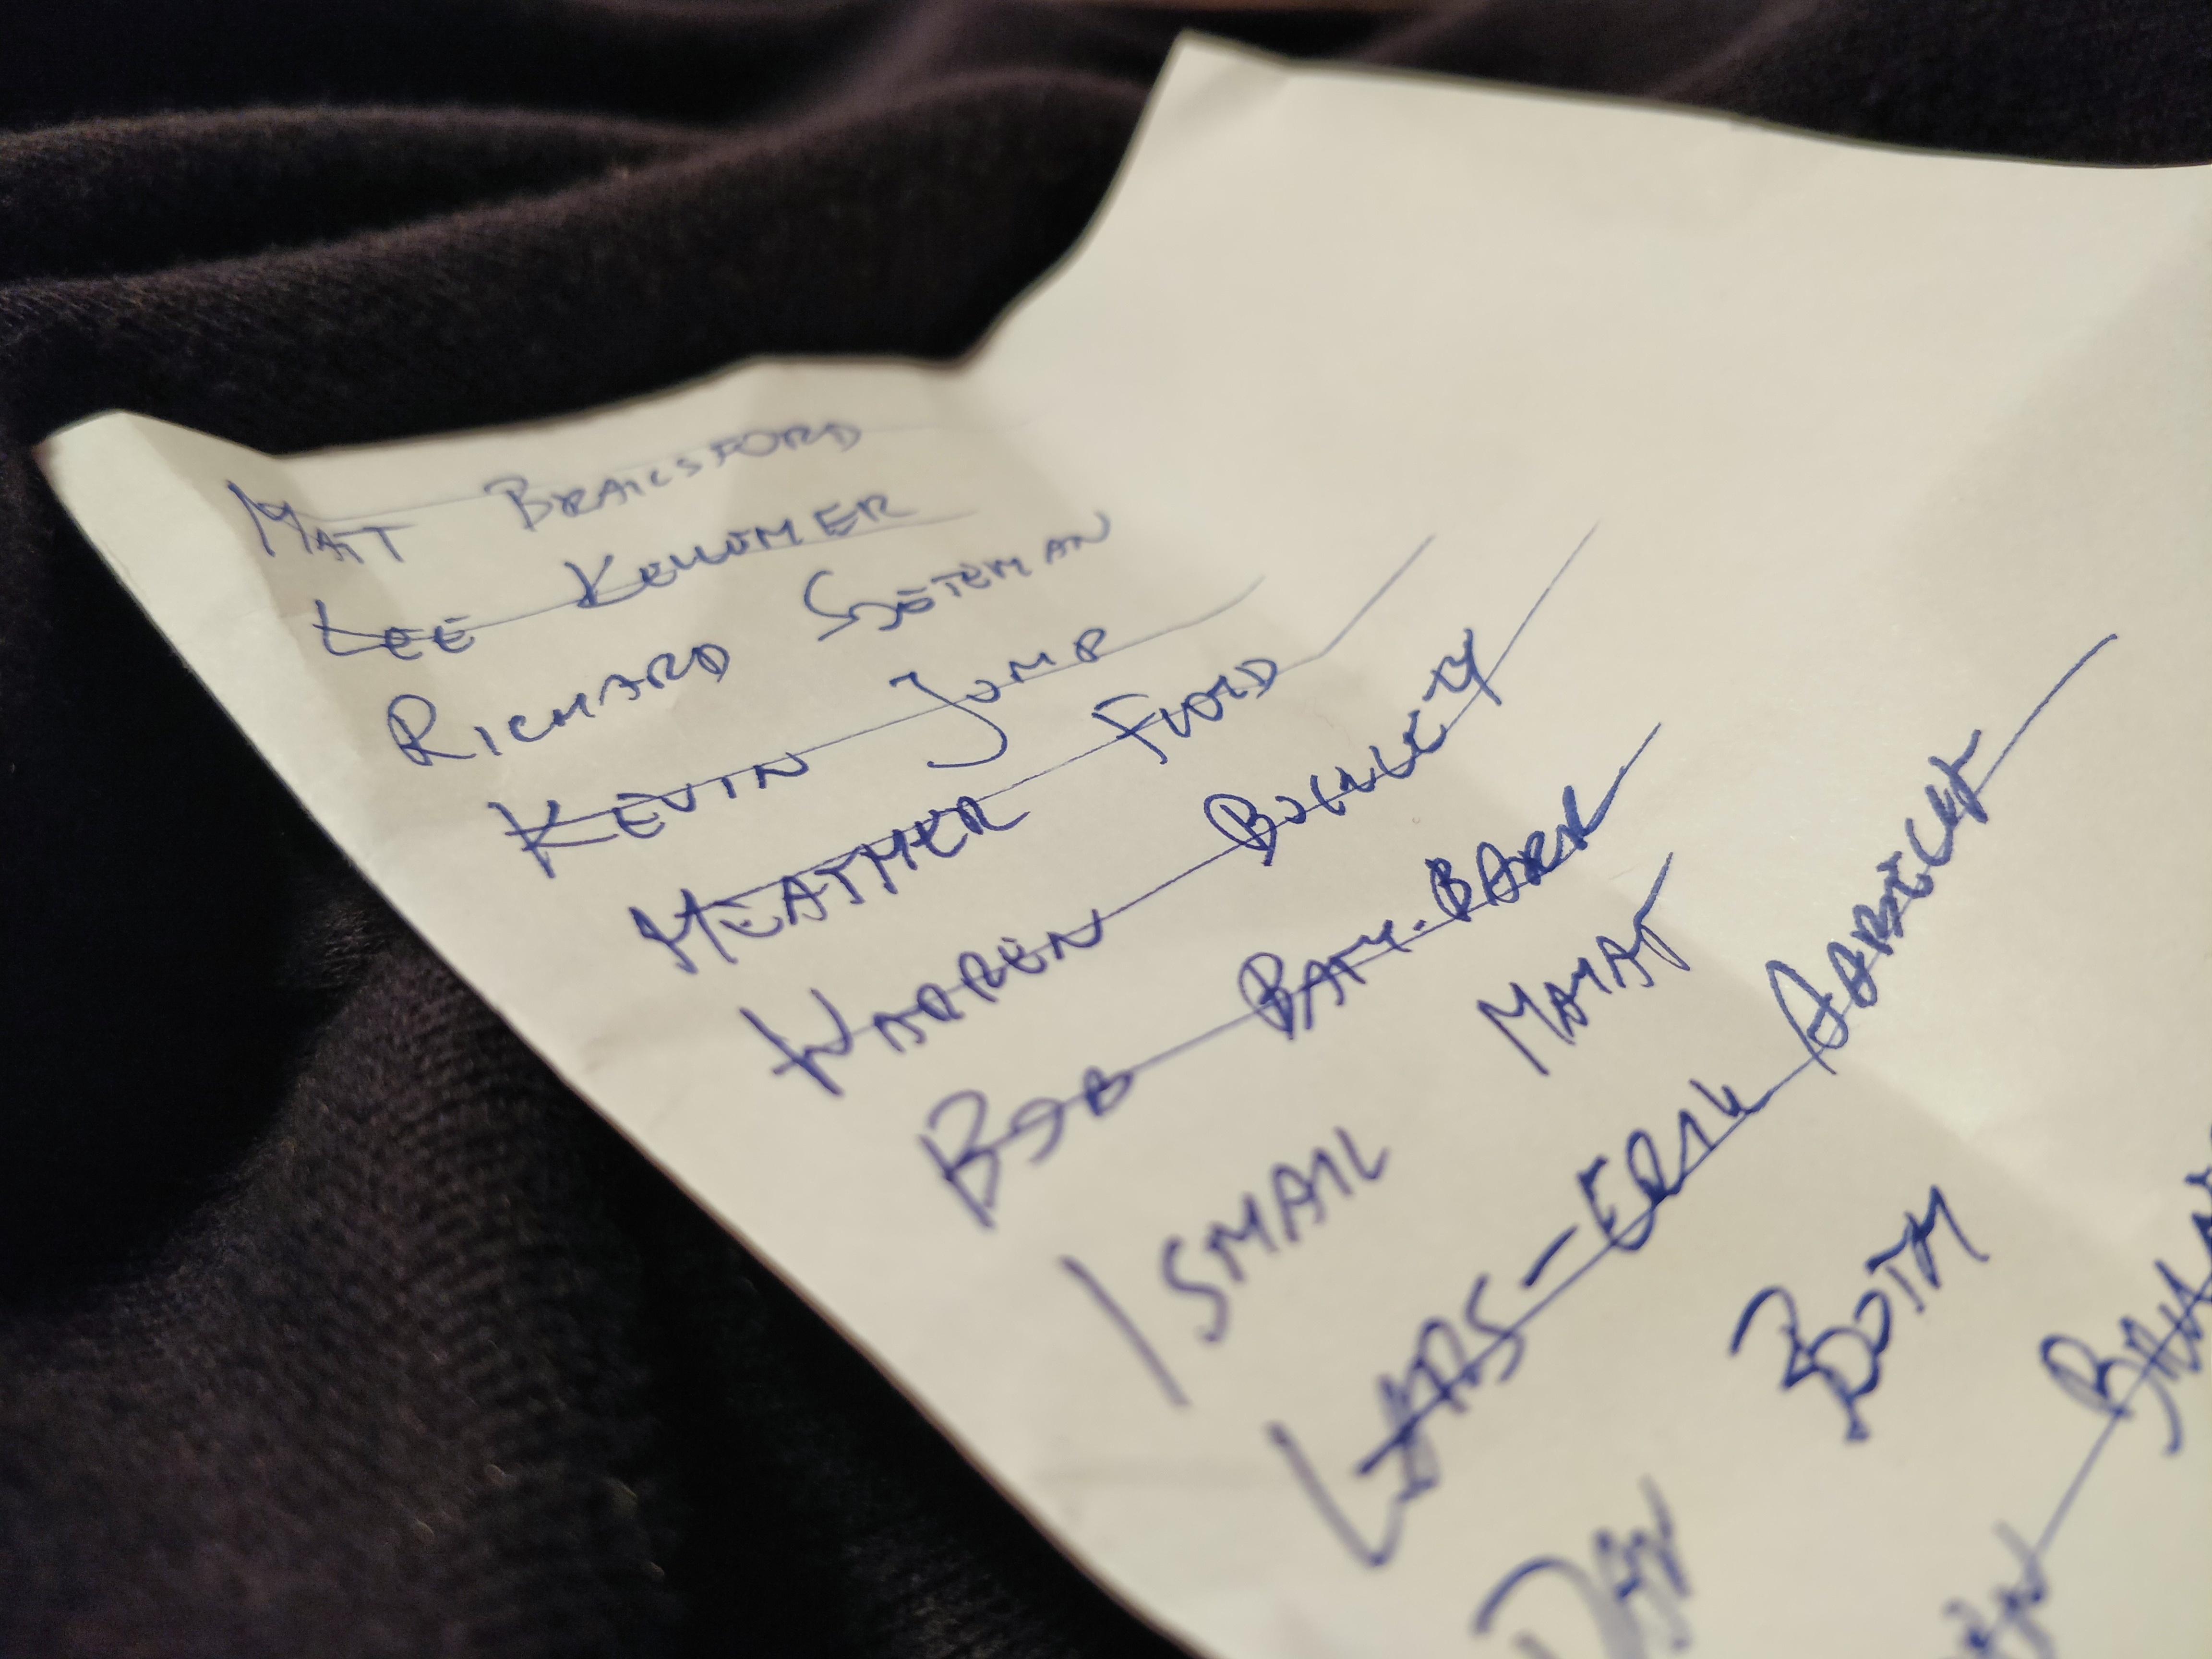 MATT BRAILSFORD
LEE KELLEHER
RICHARD SOETEMAN
KEVIN JUMP
HEATHER FLOYD
WARREN BUCKLEY
BOB BATY-BARR
ISMAIL MAYAT
LARS-ERIK AABECH
DAN BOOTH